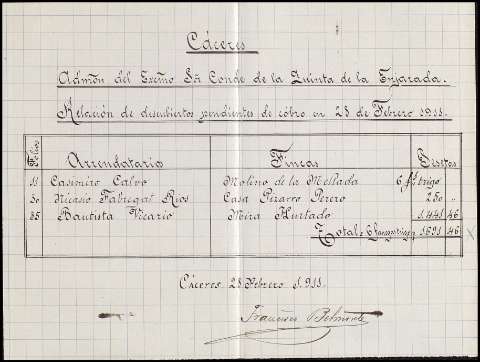 Cáceres
Admón del Excmo Sr. Conde de la Quinta de la Enjarada.
Relación de descubiertos pendientes de cobro en 28 de Febrero 1911.
Folios Arrendatarios Fincas Pesetas
11 Casimiro Calvo Molino de la Mellada 6 fs trigo
30 Nicasio Fabregat Rios Casa Pizarro Perero 250 "
85 Bautista Vicario Mira Hurtado 1.441 46
Total 6 fanegas trigo 1.691 46
Cáceres 28 Febrero 1.911.
Francisco Belmonte